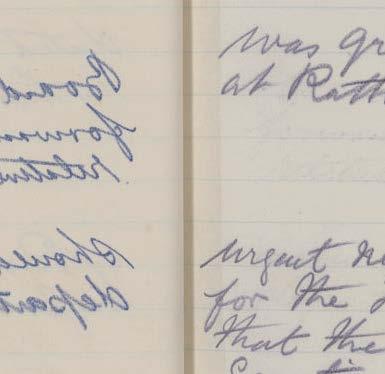 Board
forwar
relative
should
depart
was gr
at Rath
urgent ne
for the
that the